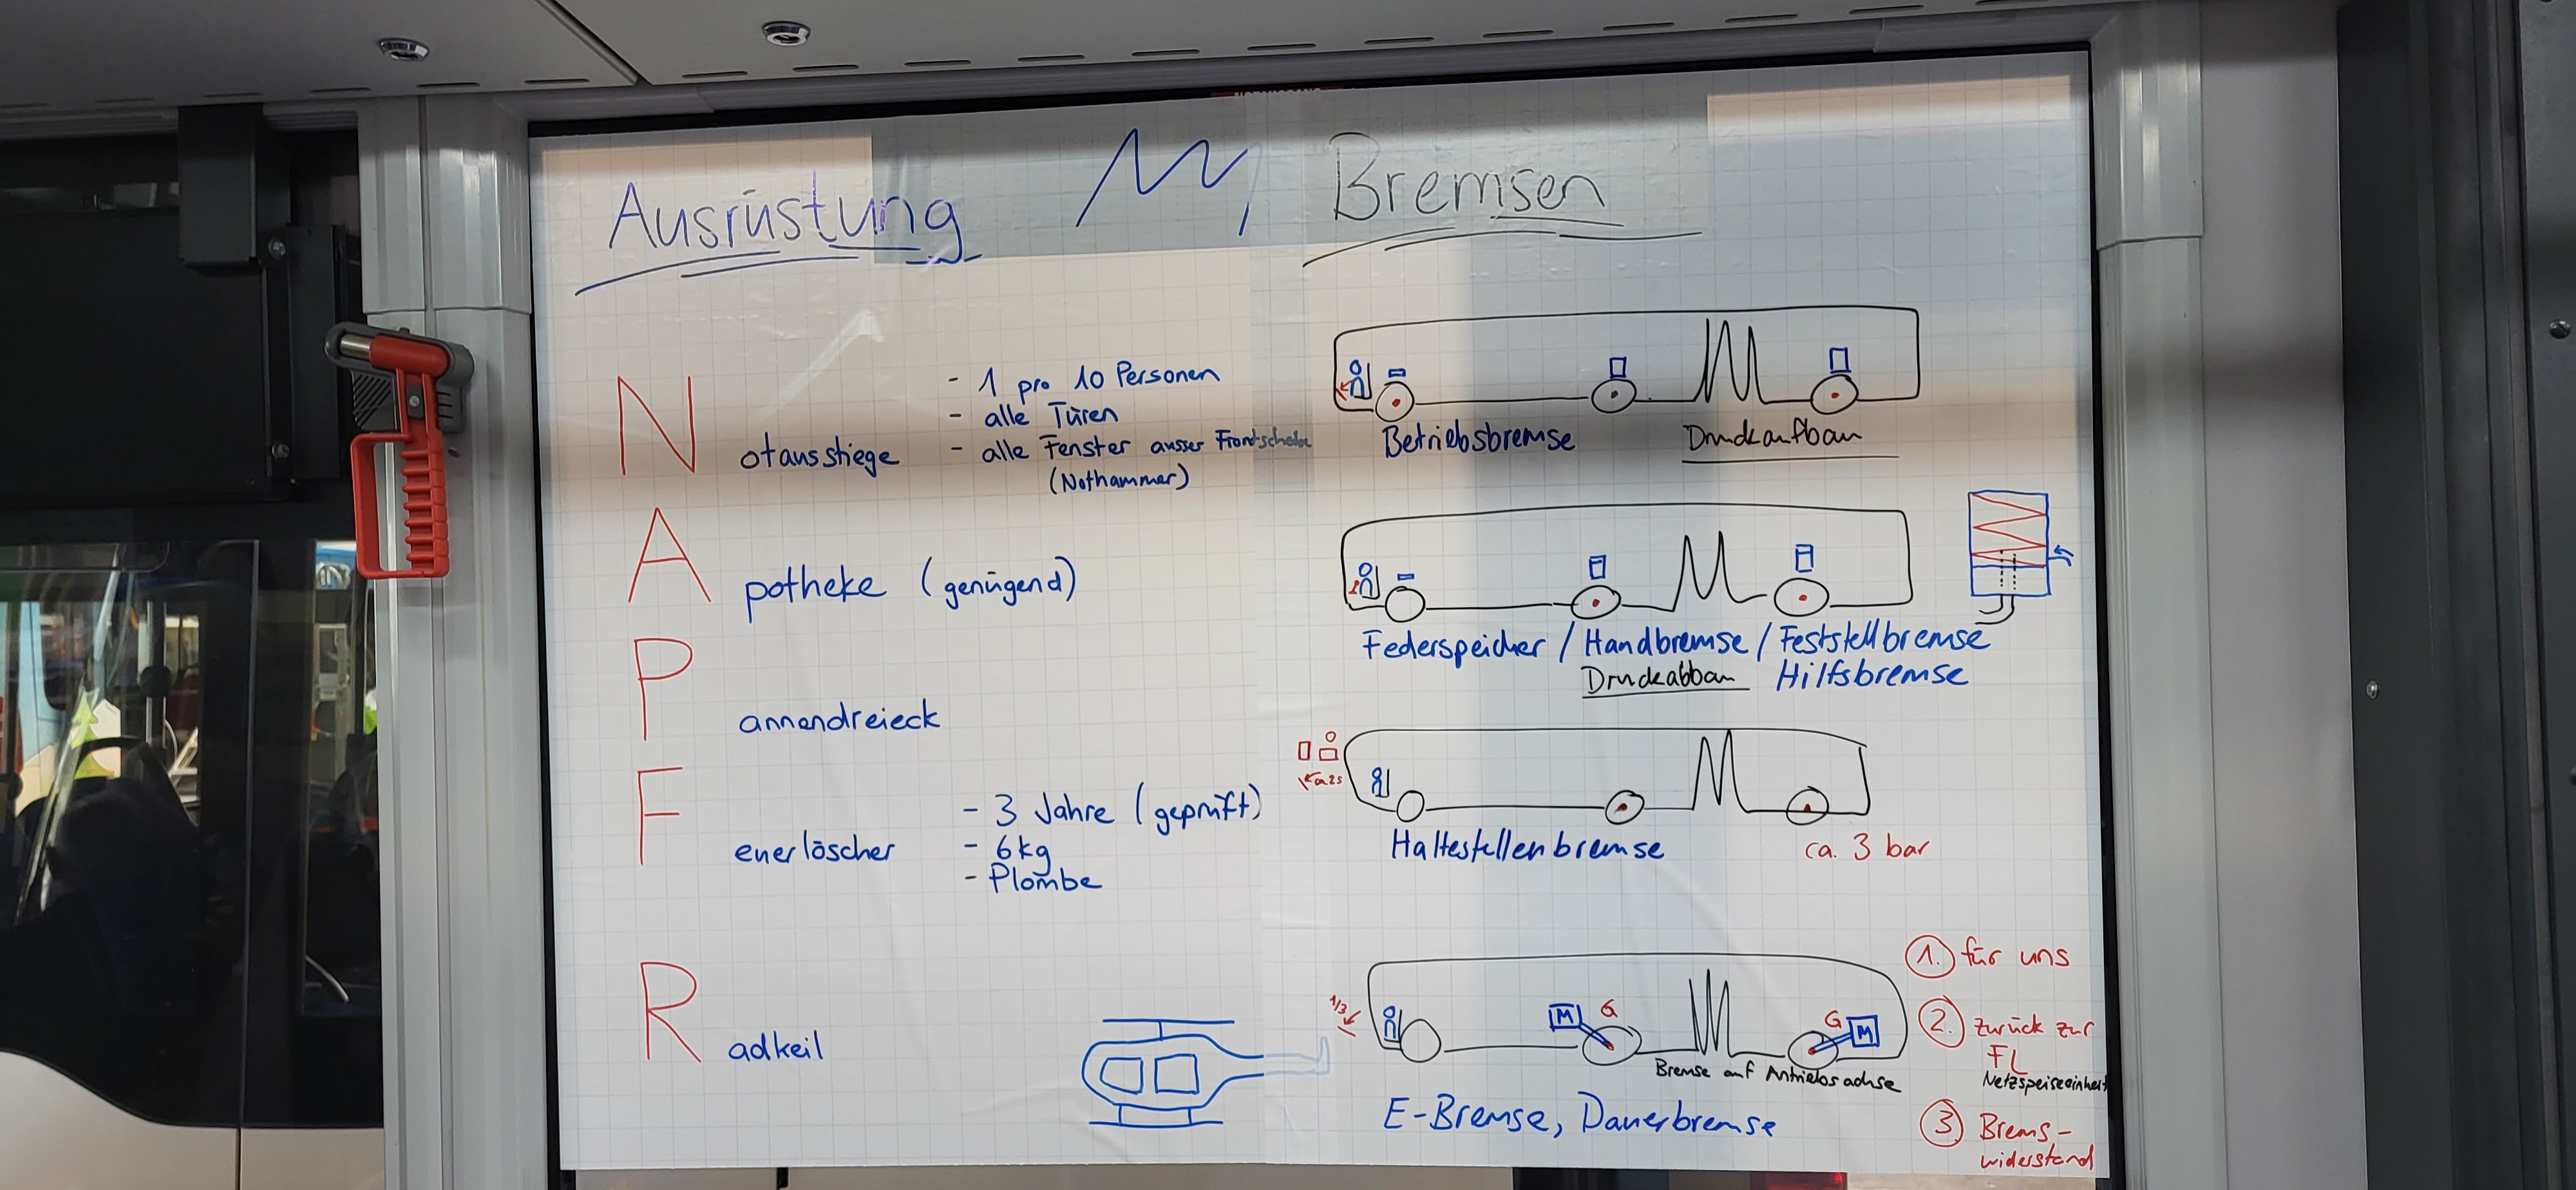 Ausrüstung
Bremsen
N otausstiege
- 1 pro 10 Personen
- alle Türen
- alle Fenster ausser Frontscheibe
(Nothammer)
A potheke (genügend)
P annendreieck
F euerlöscher
- 3 Jahre (geprüft)
- 6kg
- Plombe
R adkeil
Betriebsbremse
Druckaufbau
Federspeicher / Handbremse / Feststellbremse
Druckabbau
Hilfsbremse
ca. 2s
Haltestellenbremse
ca. 3 bar
1/3
M
G
G
M
Bremse auf Antriebsachse
E-Bremse, Dauerbremse
1. für uns
2. zurück zur
FL
Netzspeiseeinheit
3 Brems-
widerstand